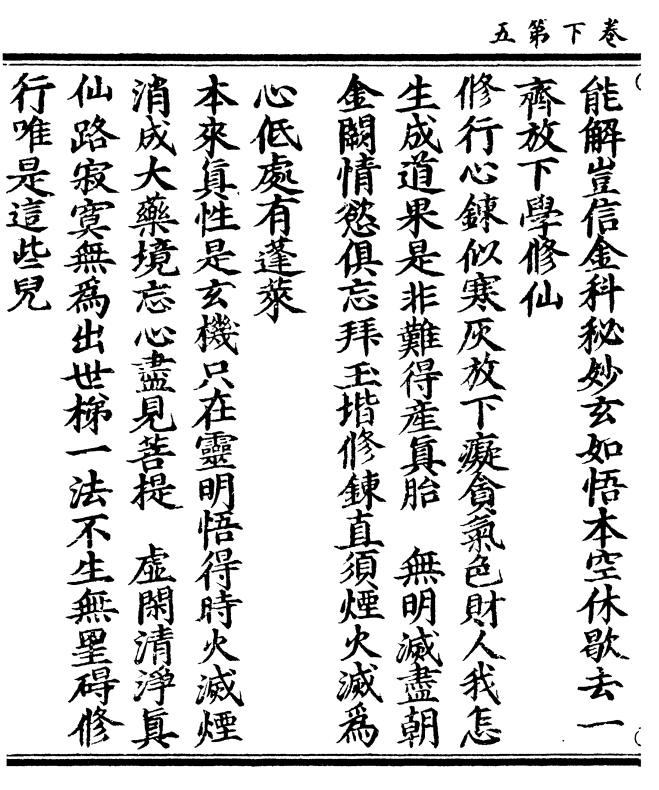 卷下第五
能解豈信金科秘妙玄如悟本空休歇去一
齊放下學修仙
修行心鍊似寒灰放下癡貪氣色財人我怎
生成道果是非難得產真胎　無明滅盡朝
金闕情慾俱忘拜玉堦修鍊直須煙火滅為
心低處有蓬萊
本來真性是玄機只在靈明悟得時火滅煙
消成大藥境忘心盡見菩提　虛閑清淨真
仙路寂寞無為出世梯一法不生無罣碍修
行唯是這些兒